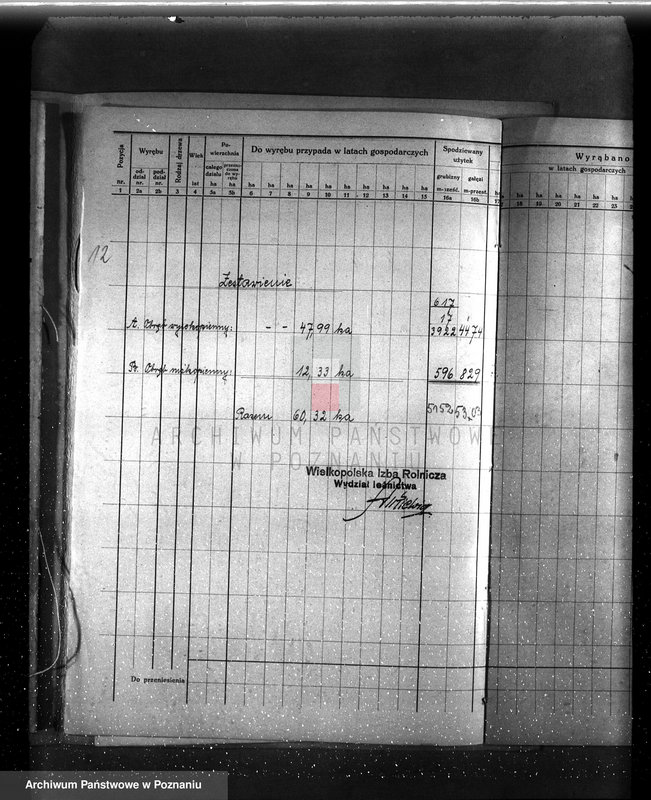 Pozycja nr.
Wyrębu
oddział nr.
pododdział nr.
Rodzaj drzewa
Wiek lat
Powierzchnia
całego działu ha
przeznaczona do wyrębu ha
Do wyrębu przypada w latach gospodarczych
ha ha ha ha ha ha ha ha ha ha
Spodziewany użytek
grubizny m-sześć.
gałęzi m-przest.
Wyrąbano
w latach gospodarczych
ha ha ha ha ha ha
1 2a 2b 3 4 5a 5b 6 7 8 9 10 11 12 13 14 15 16a 16b 17 18 19 20 21 22 23
12
Zestawienie
617
17
A. Obręb wysokopienny: - - 47,99 ha 3922 4474
B. Obręb niskopienny: 12,33 ha 596 829
Razem 60,32 ha 5152 5303
ARCHIWUM PAŃSTWOWE
W POZNANIU
Wielkopolska Izba Rolnicza
Wydział leśnictwa
Do przeniesienia
Archiwum Państwowe w Poznaniu